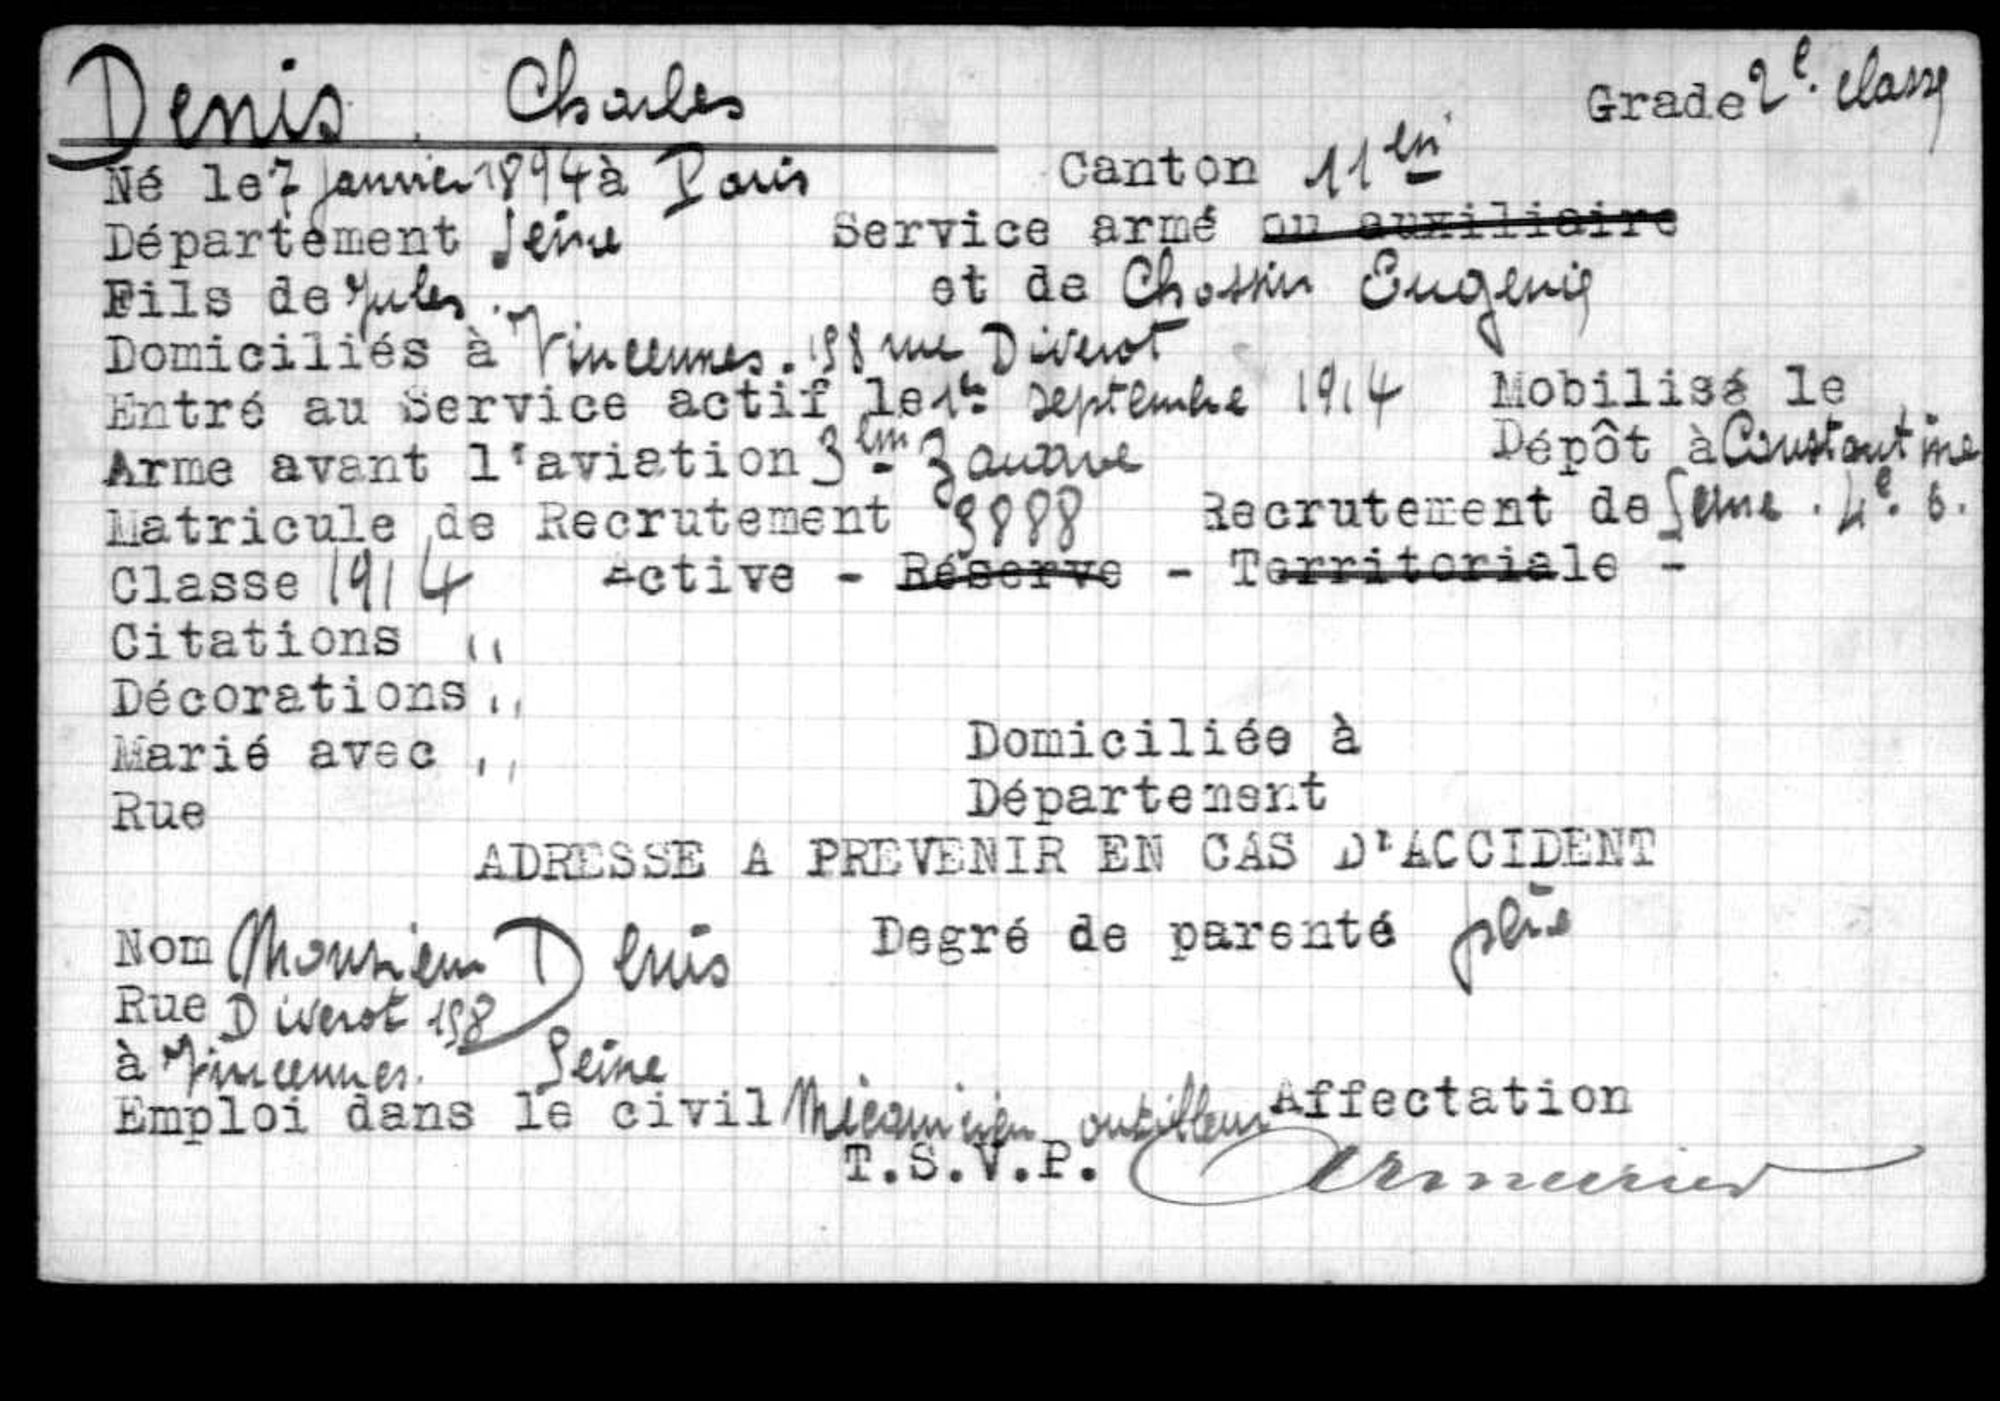 Denis Charles Grade 2e. classe
Né le 7 janvier 1894 à Paris Canton 11em
Département Seine Service armé ou auxiliaire
Fils de Jules. et de Chossin Eugenie
Domiciliés à Vincennes. 198 rue Diderot
Entré au Service actif le 1er septembre 1914 Mobilisé le
Arme avant l'aviation 3em Zouave Dépôt à Constantine
Matricule de Recrutement 3888 Recrutement de Seine. 4e. b.
Classe 1914 Active - Réserve - Territoriale -
Citations "
Décorations "
Marié avec " Domiciliée à
Rue Département
ADRESSE A PREVENIR EN CAS D'ACCIDENT
Nom Monsieur Denis Degré de parenté père
Rue Diderot 198
à Vincennes. Seine
Emploi dans le civil Mécanicien outilleur Affectation
T.S.V.P. Armurier